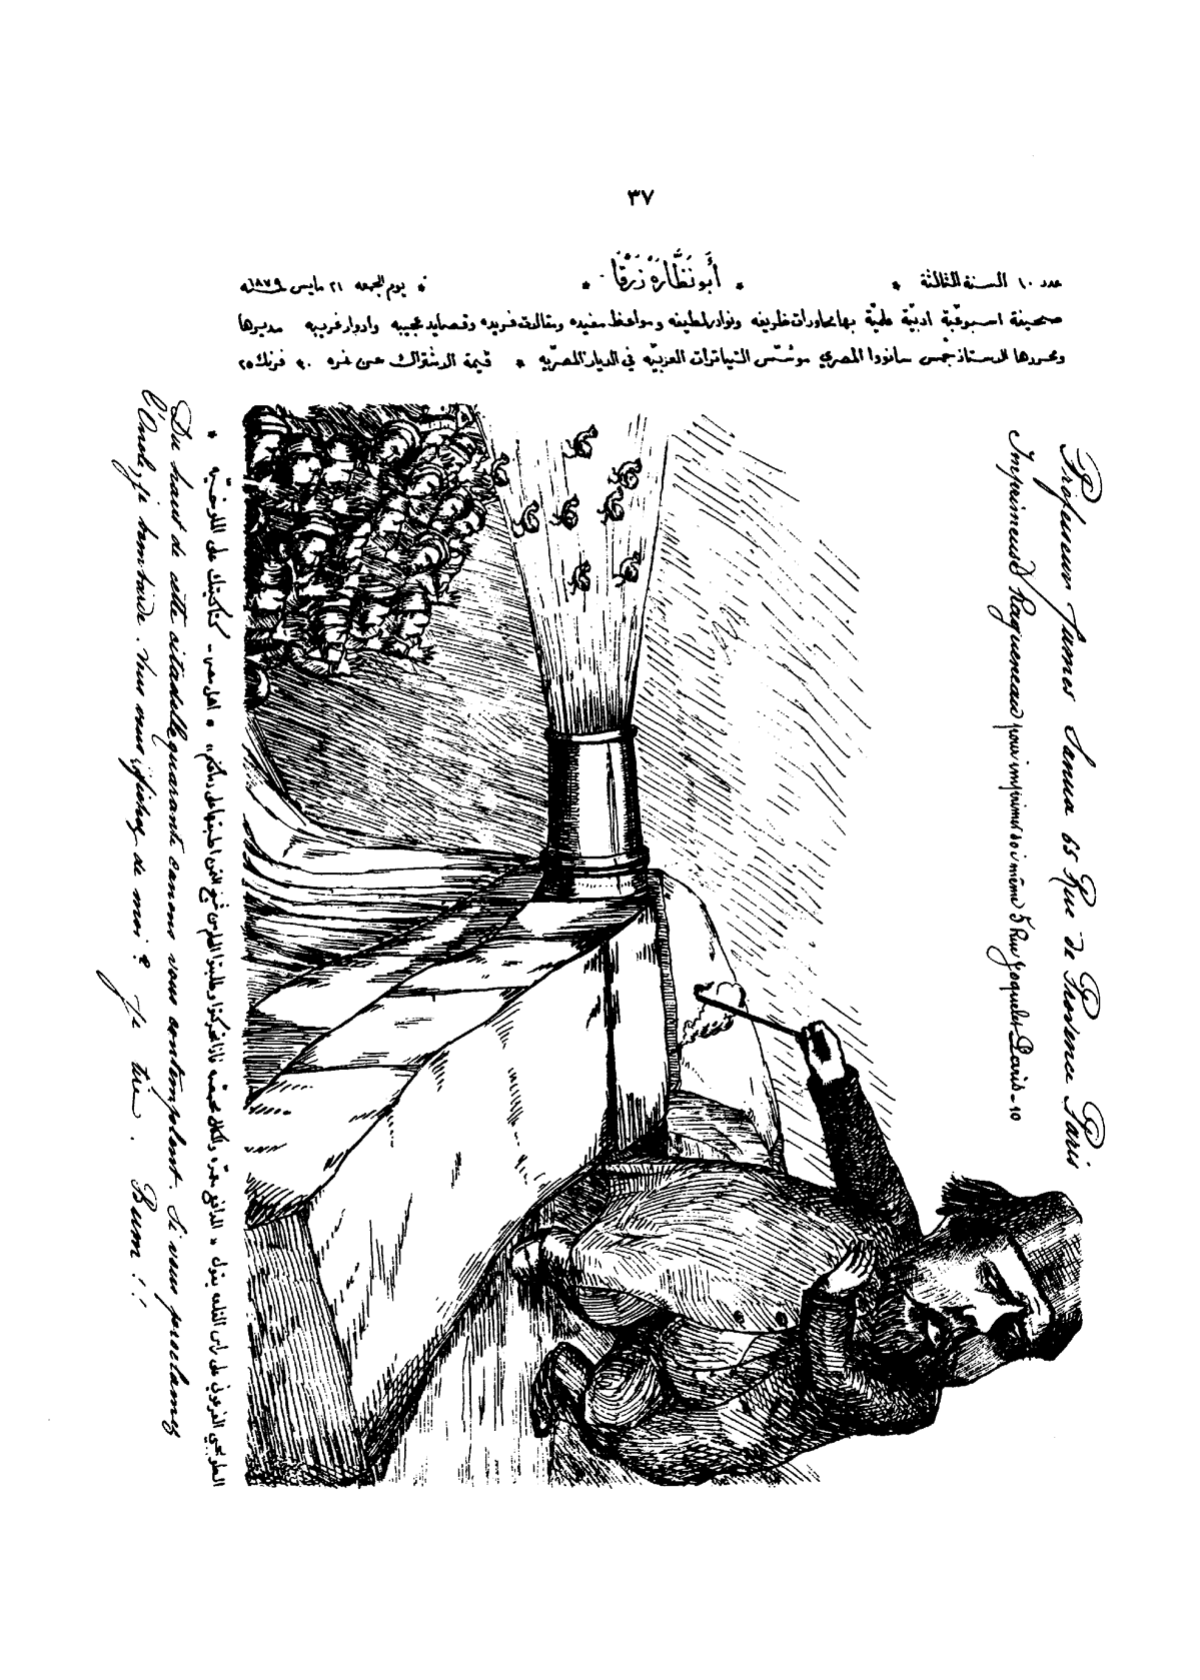 ٣٧
عدد ١٠ السنة الثالثة * أَبُو نَظَّارَة زَرْقَا * يوم الجمعه ٢١ مايس سنة ١٨٧٩
صحيفة اسبوعية ادبيّة علميّة بها محاورات ظريفه ونوادر لطيفه ومواعظ مفيده ومقالات فريده وقصايد عجيبه وادوار غريبه مديرها
ومحررها الاستاذ جمس سانووا المصري موسّس التياترات العربيّه في الديار المصريّه * قيمة الاشتراك عن نمره ٣٠ فرنك ٢٥
Professeur James Sanua 65 Rue de Provence Paris
Imprimeur Ragueneau pour imprimer soi même 5 Rue Joquelet Paris - 10
الطوبجي الفرعوني على راس القلعه يقول * المدافع
* اهل مصر -
Du haut de cette citadelle quarante canons vous contemplent. Si vous proclamez
l'Unol, je bombarde. Vous vous fichez de moi? Je tire. Bum!!